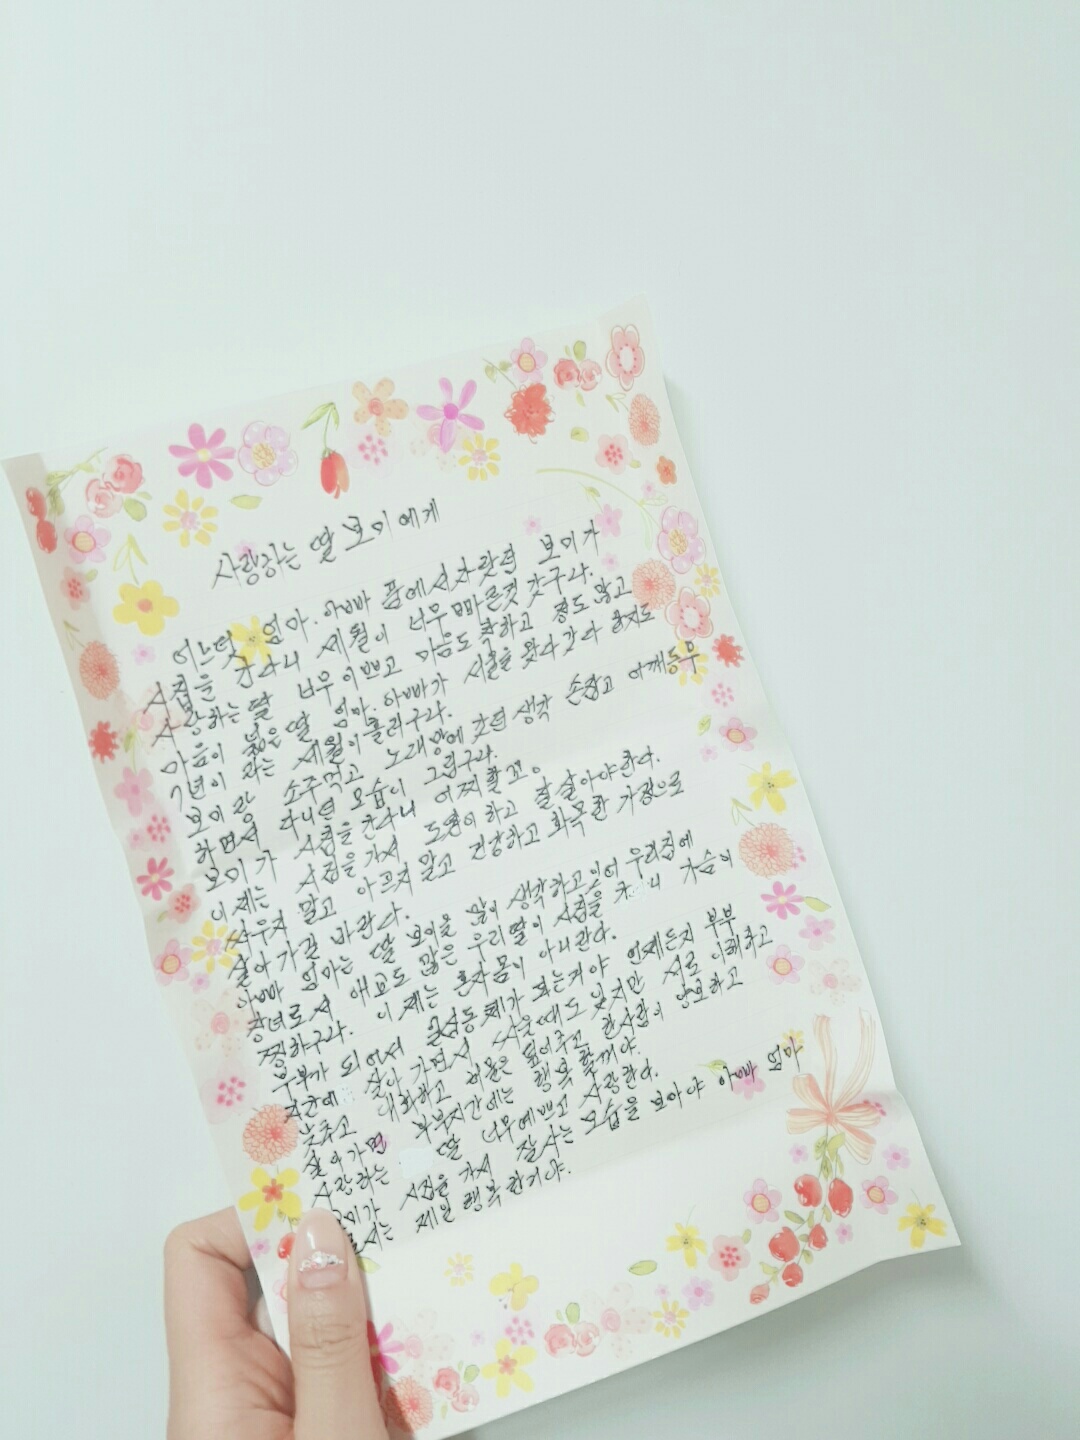 사랑하는 딸 보미에게
어느덧 엄마.아빠 품에서 자랏던 보미가
시집을 간다니 세월이 너무 빠른것 갓구나.
사랑하는 딸 너무 이쁘고 마음도 착하고 정도 많고
마음이 넓은 딸 엄마.아빠가 서울을 왓다 갓다 한지도
7년이 라는 세월이 흘러구나.
보미랑 소주먹고 노래방에 갓던 생각 손잡고 어깨동무
하면서 다니던 모습이 그립구나.
보미가 시집을 간다니 어찌할꼬.
이제는 시집을 가서 도원이하고 잘 살아야한다.
싸우지 말고 아프지 말고 건강하고 화목한 가정으로
살아가길 바란다.
아빠 엄마는 딸 보미을 많이 생각하고 있어 우리집에
장녀로서 애교도 많은 우리딸이 시집을 가니 가슴이
찡하구나. 이제는 혼자몸이 아니란다.
부부가 되어서 공성동체가 되는거야 언제든지 부부
지간에 살아 가면서 싸울때도 잊지만 서로 이해하고
낮추고 대화하고 허물은 덮어주고 한사람이 양보하고
살아가면 부부지간에는 행복할꺼야.
사랑하는 딸 너무예쁘고 사랑한다.
보미가 시집을 가서 잘사는 모습을 보아야 아빠 엄마
로서는 제일 행복한거야.